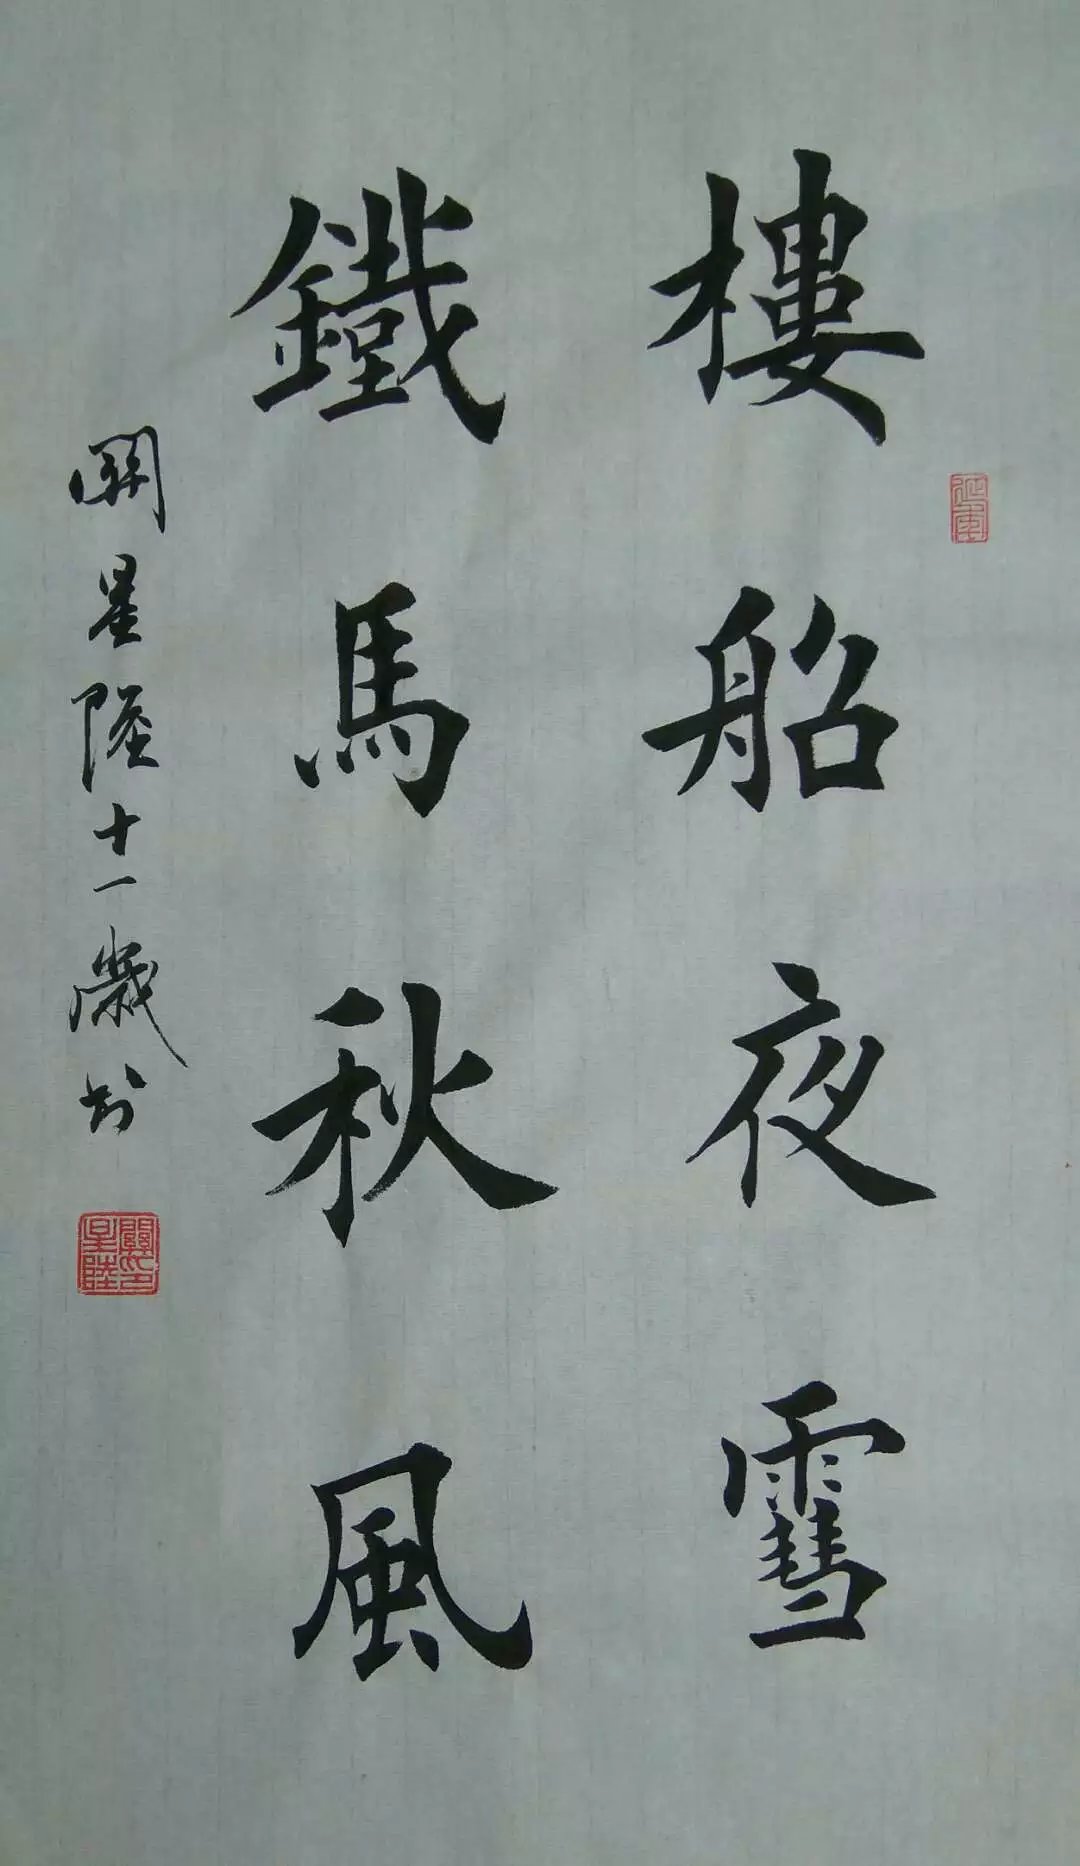 樓船夜雪
鐵馬秋風
關星陸十一歲书
關印星陸